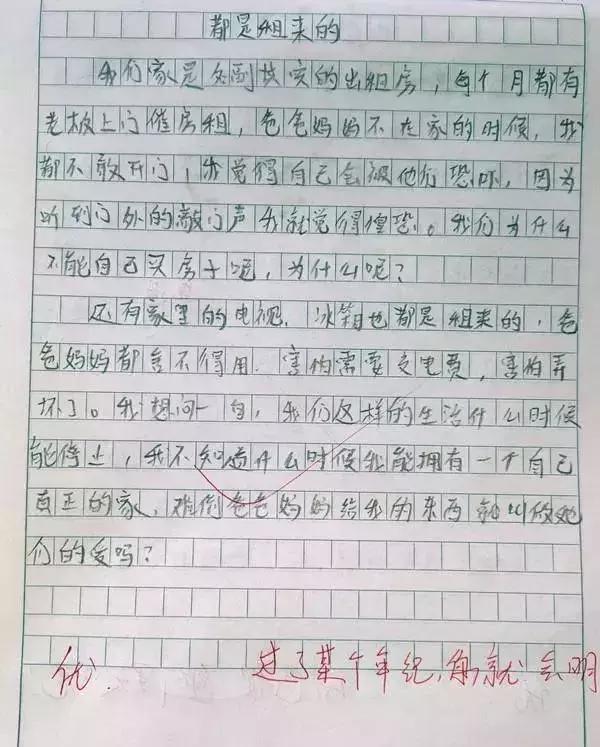 都是租来的
我们家是处副块实的出租房，每个月都有
老板上门催房租，爸爸妈妈不在家的时候，我
都不敢开门，我觉得自己会被他们恐吓，因为
听到门外的敲门声我就觉得惶恐。我们为什么
不能自己买房子呢，为什么呢？
还有家里的电视，冰箱也都是租来的，爸
爸妈妈都舍不得用，害怕需要交电费，害怕弄
坏了。我想问一句，我们这样的生活什么时候
能停止，我不知道什么时候我能拥有一个自己
真正的家，难倒爸爸妈妈给我的东西就叫做她
们的爱吗？
优 过了某个年纪，你就会明